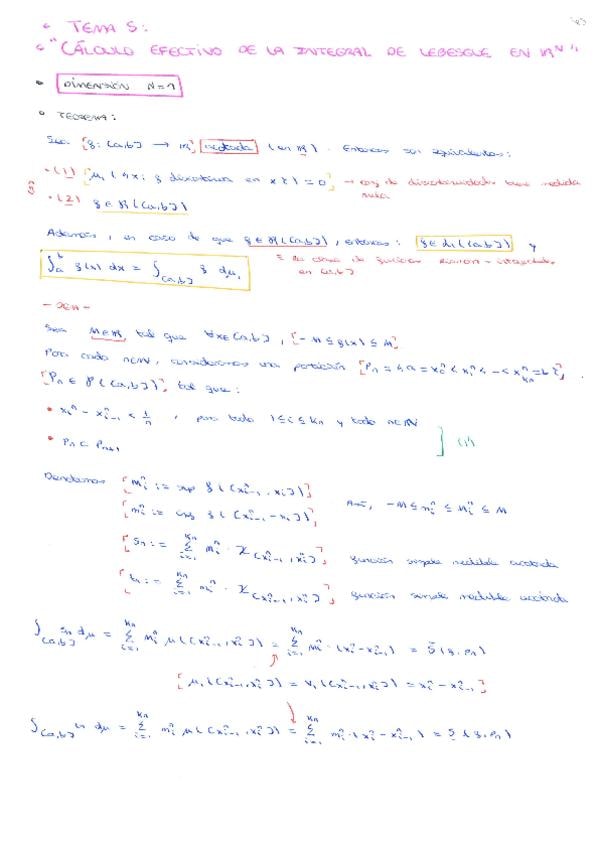 TEMA 5:
"CÁLCULO EFECTIVO DE LA INTEGRAL DE LEBESGUE EN ℝᴺ"
DIMENSIÓN N=1
TEOREMA:
Sea [f: [a,b] → ℝ] acotada (en ℝ). Entonces son equivalentes:
(1) [μ₁({x: f discontinua en x}) = 0] → conj de discontinuidades tiene medida nula.
(2) f ∈ R([a,b])
Además, en caso de que f ∈ R([a,b]), entonces: f ∈ L₁([a,b]) y
∫ₐᵇ f(x) dx = ∫_[a,b] f dμ₁
en [a,b]
- DEM -
Sea M∈ℝ tal que ∀x∈[a,b], [-M ≤ f(x) ≤ M]
Para cada n∈ℕ, consideramos una partición [Pₙ = {a = x₀ⁿ < x₁ⁿ < ... < xⁿ_kₙ = b}],
[Pₙ ∈ P([a,b])], tal que:
• xᵢⁿ - xᵢ₋₁ⁿ < 1/n, para todo 1≤i≤kₙ y todo n∈ℕ
• Pₙ ⊂ Pₙ₊₁
(1)
Denotamos [Mᵢⁿ := sup f((xᵢ₋₁ⁿ, xᵢⁿ])]
[mᵢⁿ := inf f((xᵢ₋₁ⁿ, xᵢⁿ])]
Así, -M ≤ mᵢⁿ ≤ Mᵢⁿ ≤ M
[sₙ := Σᵢ₌₁^kₙ Mᵢⁿ · χ_(xᵢ₋₁ⁿ, xᵢⁿ]], función simple medible acotada
[tₙ := Σᵢ₌₁^kₙ mᵢⁿ · χ_(xᵢ₋₁ⁿ, xᵢⁿ]], función simple medible acotada
∫_[a,b] sₙ dμ = Σᵢ₌₁^kₙ Mᵢⁿ μ((xᵢ₋₁ⁿ, xᵢⁿ]) = Σᵢ₌₁^kₙ Mᵢⁿ · (xᵢⁿ - xᵢ₋₁ⁿ) = S̄(f, Pₙ)
[μ₁((xᵢ₋₁ⁿ, xᵢⁿ]) = V₁((xᵢ₋₁ⁿ, xᵢⁿ]) = xᵢⁿ - xᵢ₋₁ⁿ]
∫_[a,b] tₙ dμ = Σᵢ₌₁^kₙ mᵢⁿ μ((xᵢ₋₁ⁿ, xᵢⁿ]) = Σᵢ₌₁^kₙ mᵢⁿ · (xᵢⁿ - xᵢ₋₁ⁿ) = S̲(f, Pₙ)